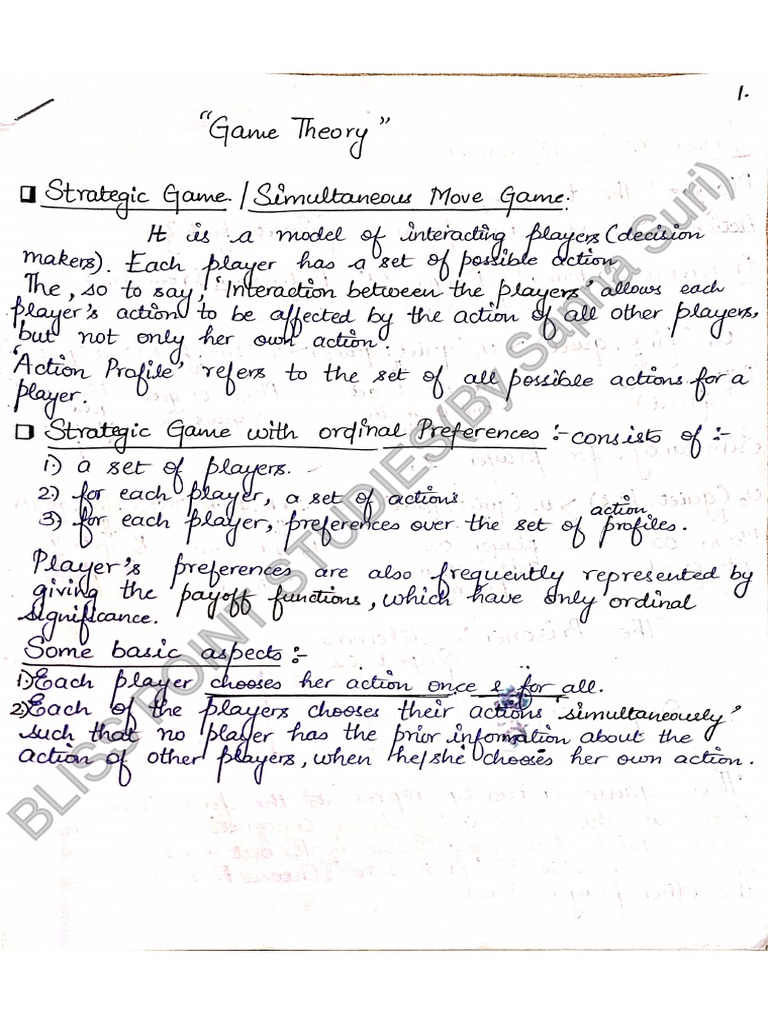 1.
"Game Theory"
Strategic Game / Simultaneous Move Game.
It is a model of interacting players (decision
makers). Each player has a set of possible action
The, so to say, 'Interaction between the players' allows each
player's action to be affected by the action of all other players,
but not only her own action.
'Action Profile' refers to the set of all possible actions for a
player.
Strategic Game with ordinal Preferences :- consists of :-
1.) a set of players.
2.) for each player, a set of actions
3) for each player, preferences over the set of action profiles.
Player's preferences are also frequently represented by
giving the payoff functions, which have only ordinal
significance.
Some basic aspects :-
1) Each player chooses her action once & for all.
2) Each of the players chooses their actions 'simultaneously'
such that no player has the prior infomation about the
action of other players, when he/she chooses her own action.
BLISS POINT STUDIES (By Sapna Suri)